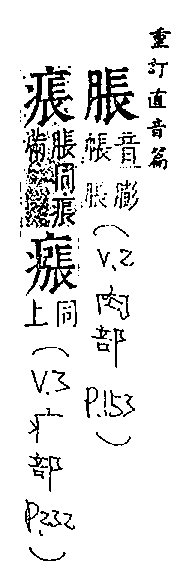 重訂直音篇
脹 音帳膨脹 (V.2 肉部 P.153)
痮 脹同 瘬 同上 (V.3 疒部 P.232)